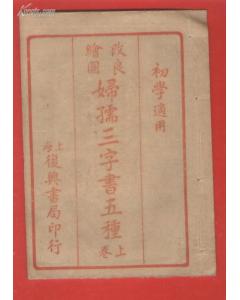 初學適用
改良
繪圖
婦孺三字書五種
上卷
上海
復興書局印行